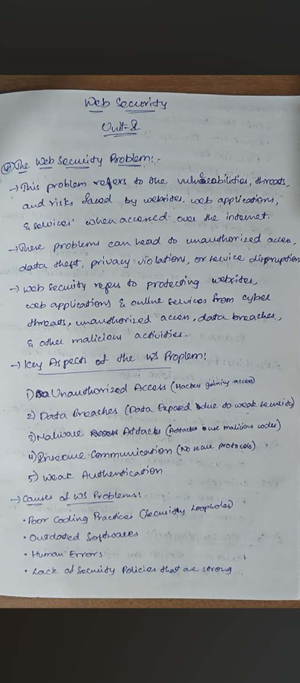 Web Security
Unit-2
The Web Security Problem:-
→ This problem refers to the vulnerabilities, threats,
and risks faced by websites, web applications,
& services when accessed over the internet.
→ These problems can lead to unauthorized access,
data theft, privacy violations, or service disruption
→ Web Security refers to protecting websites,
web applications & online services from cyber
threats, unauthorized access, data breaches,
& other malicious activities.
→ Key Aspects of the WS Problem:
1) Unauthorized Access (Hackers gaining access)
2) Data Breaches (Data Exposed due to weak security)
3) Malware Attacks (malicious codes)
4) Insecure Communication (No protocols)
5) Weak Authentication
→ Causes of WS Problems:
• Poor Coding Practices (Security Loopholes)
• Outdated Softwares
• Human Errors
• Lack of Security Policies that are strong